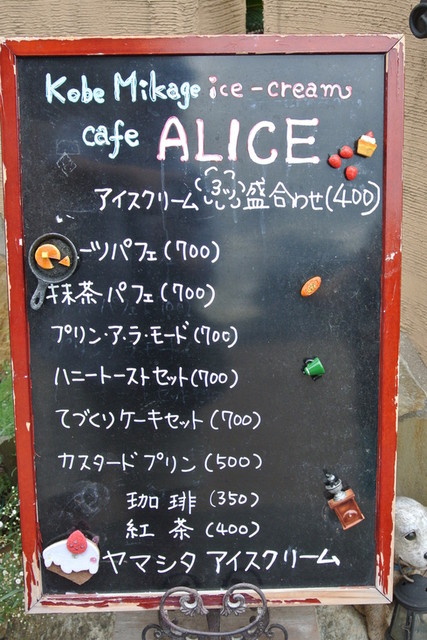 Kobe Mikage ice-cream
cafe ALICE
アイスクリーム(3ツ)盛合わせ(400)
ーツパフェ(700)
抹茶パフェ(700)
プリン・ア・ラ・モード(700)
ハニートーストセット(700)
てづくりケーキセット(700)
カスタードプリン(500)
珈琲(350)
紅茶(400)
ヤマシタアイスクリーム